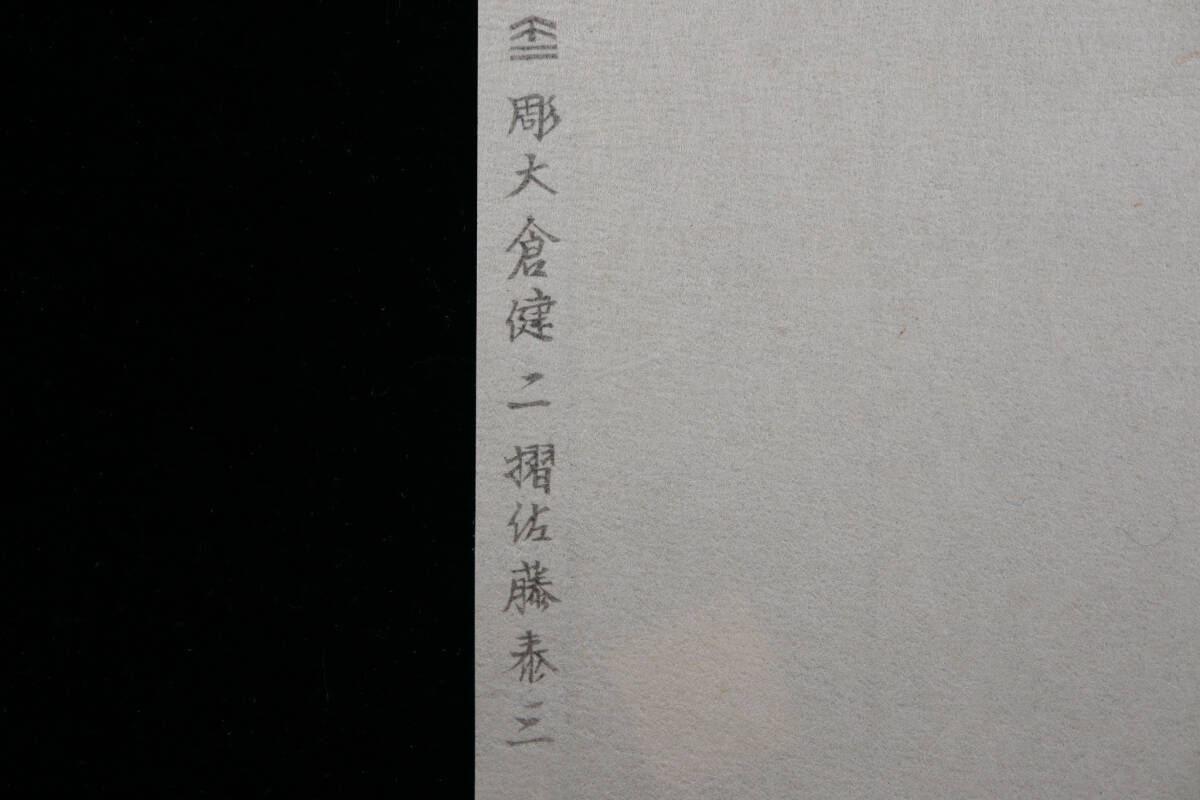 彫大倉健二摺佐藤泰三